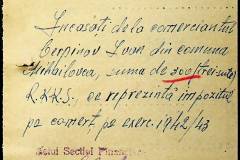 Încasați de la comerciantul
Cerpinov Ivan din comuna
Mihailovca, suma de 300 (trei sute)
R.K.K.S., ce reprezintă impozitul
pe comerț pe exerc. 1942/43
Secției Finan